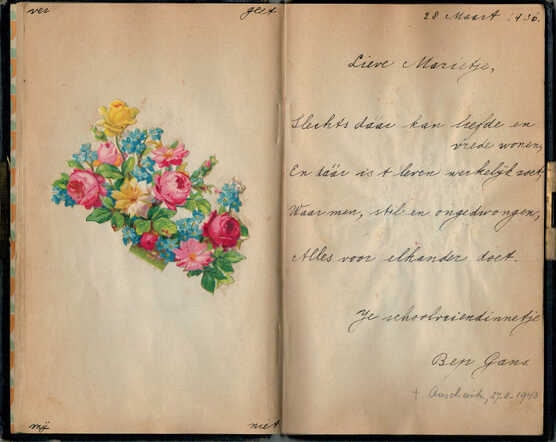 ver geet
mij niet
28 Maart 1936.
Lieve Marietje,
Slechts daar kan liefde en
vrede wonen,
En däär is 't leven werkelijk zoet,
Waar men, stil en ongedwongen,
Alles voor elkander doet.
Je schoolvriendinnetje
Bep Gans.
† Auschwitz, 27-8-1943